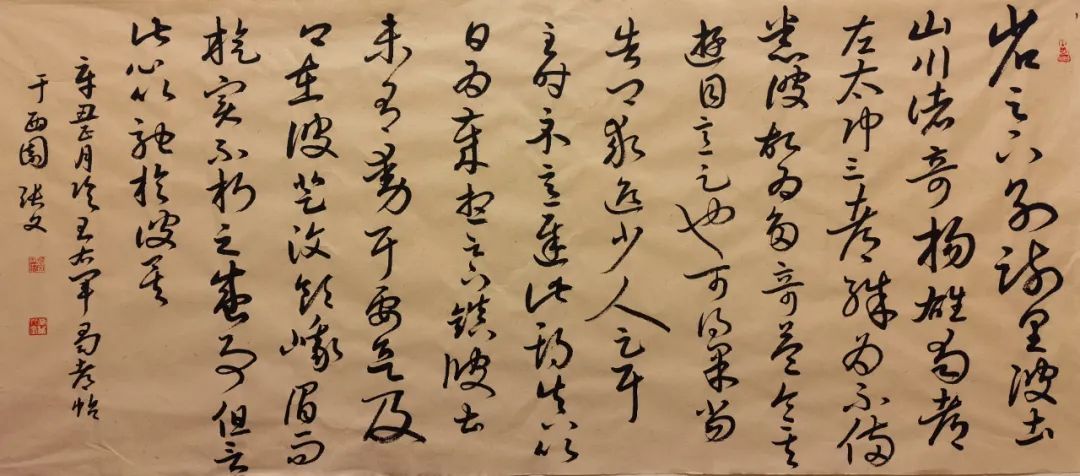 省足下別疏具彼土
山川诸奇楊雄蜀都
左太冲三都殊为不備
悉彼故为多奇益令其
遊目意足也可得果當
告卿求迎少人足耳
至时示意遲此期真以
日为歲想足下鎮彼土
未有動耳要欲及
卿在彼登汶領峨眉而
旋实不朽之盛事但言
此心以馳於彼矣
辛丑正月临王右軍蜀都帖
于西園 张文